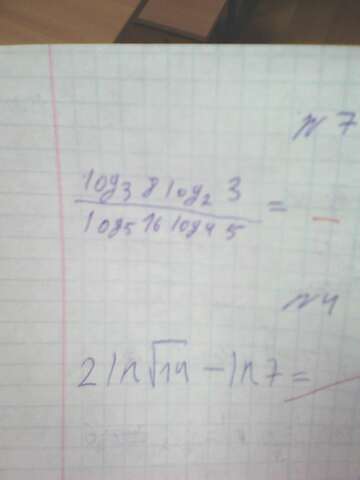 №7
log₃ 8 log₂ 3
log₅ 16 log₄ 5 =
№4
2 ln √14 − ln 7 =